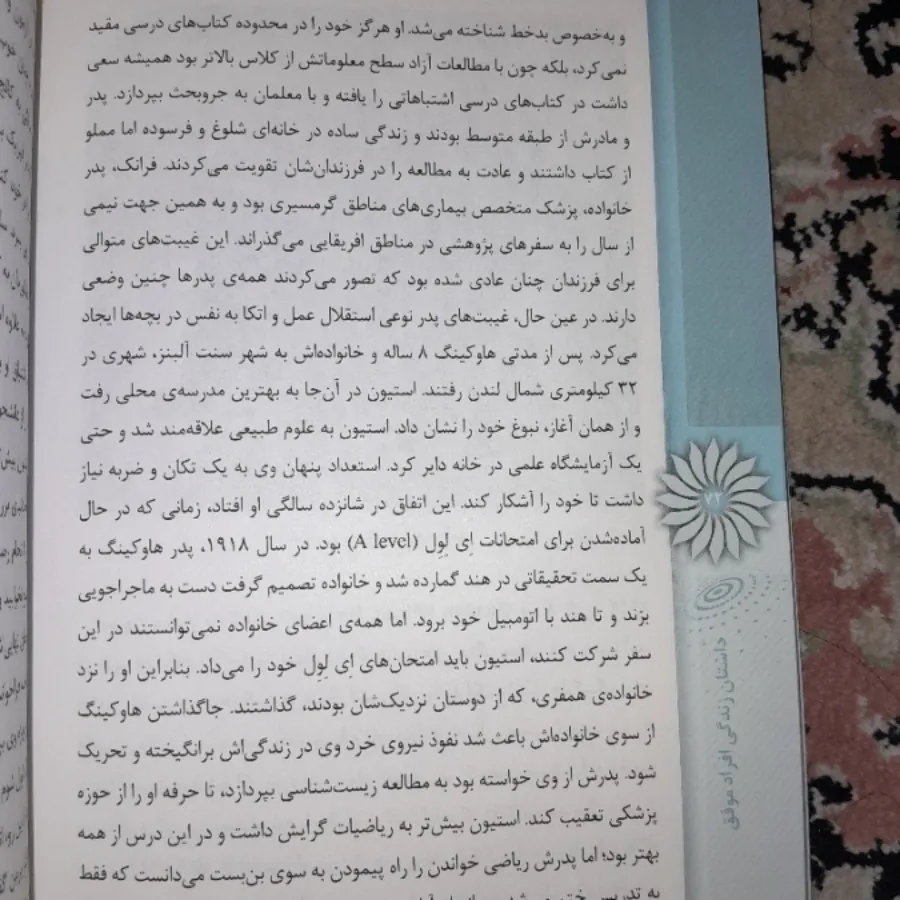 و به‌خصوص بدخط شناخته می‌شد. او هرگز خود را در محدوده کتاب‌های درسی مقید
نمی‌کرد، بلکه چون با مطالعات آزاد سطح معلوماتش از کلاس بالاتر بود همیشه سعی
داشت در کتاب‌های درسی اشتباهاتی را یافته و با معلمان به جروبحث بپردازد. پدر
و مادرش از طبقه متوسط بودند و زندگی ساده در خانه‌ای شلوغ و فرسوده اما مملو
از کتاب داشتند و عادت به مطالعه را در فرزندان‌شان تقویت می‌کردند. فرانک، پدر
خانواده، پزشک متخصص بیماری‌های مناطق گرمسیری بود و به همین جهت نیمی
از سال را به سفرهای پژوهشی در مناطق افریقایی می‌گذراند. این غیبت‌های متوالی
برای فرزندان چنان عادی شده بود که تصور می‌کردند همه‌ی پدرها چنین وضعی
دارند. در عین حال، غیبت‌های پدر نوعی استقلال عمل و اتکا به نفس در بچه‌ها ایجاد
می‌کرد. پس از مدتی هاوکینگ ۸ ساله و خانواده‌اش به شهر سنت آلبنز، شهری در
۳۲ کیلومتری شمال لندن رفتند. استیون در آن‌جا به بهترین مدرسه‌ی محلی رفت
و از همان آغاز، نبوغ خود را نشان داد. استیون به علوم طبیعی علاقه‌مند شد و حتی
یک آزمایشگاه علمی در خانه دایر کرد. استعداد پنهان وی به یک تکان و ضربه نیاز
داشت تا خود را آشکار کند. این اتفاق در شانزده سالگی او افتاد، زمانی که در حال
آماده‌شدن برای امتحانات اِی لِوِل (A level) بود. در سال ۱۹۱۸، پدر هاوکینگ به
یک سمت تحقیقاتی در هند گمارده شد و خانواده تصمیم گرفت دست به ماجراجویی
بزند و تا هند با اتومبیل خود برود. اما همه‌ی اعضای خانواده نمی‌توانستند در این
سفر شرکت کنند، استیون باید امتحان‌های اِی لِوِل خود را می‌داد. بنابراین او را نزد
خانواده‌ی همفری، که از دوستان نزدیک‌شان بودند، گذاشتند. جاگذاشتن هاوکینگ
از سوی خانواده‌اش باعث شد نفوذ نیروی خرد وی در زندگی‌اش برانگیخته و تحریک
شود. پدرش از وی خواسته بود به مطالعه زیست‌شناسی بپردازد، تا حرفه او را از حوزه
پزشکی تعقیب کند. استیون بیش‌تر به ریاضیات گرایش داشت و در این درس از همه
بهتر بود؛ اما پدرش ریاضی خواندن را راه پیمودن به سوی بن‌بست می‌دانست که فقط
به تدریس
۷۲
داستان زندگی افراد موفق